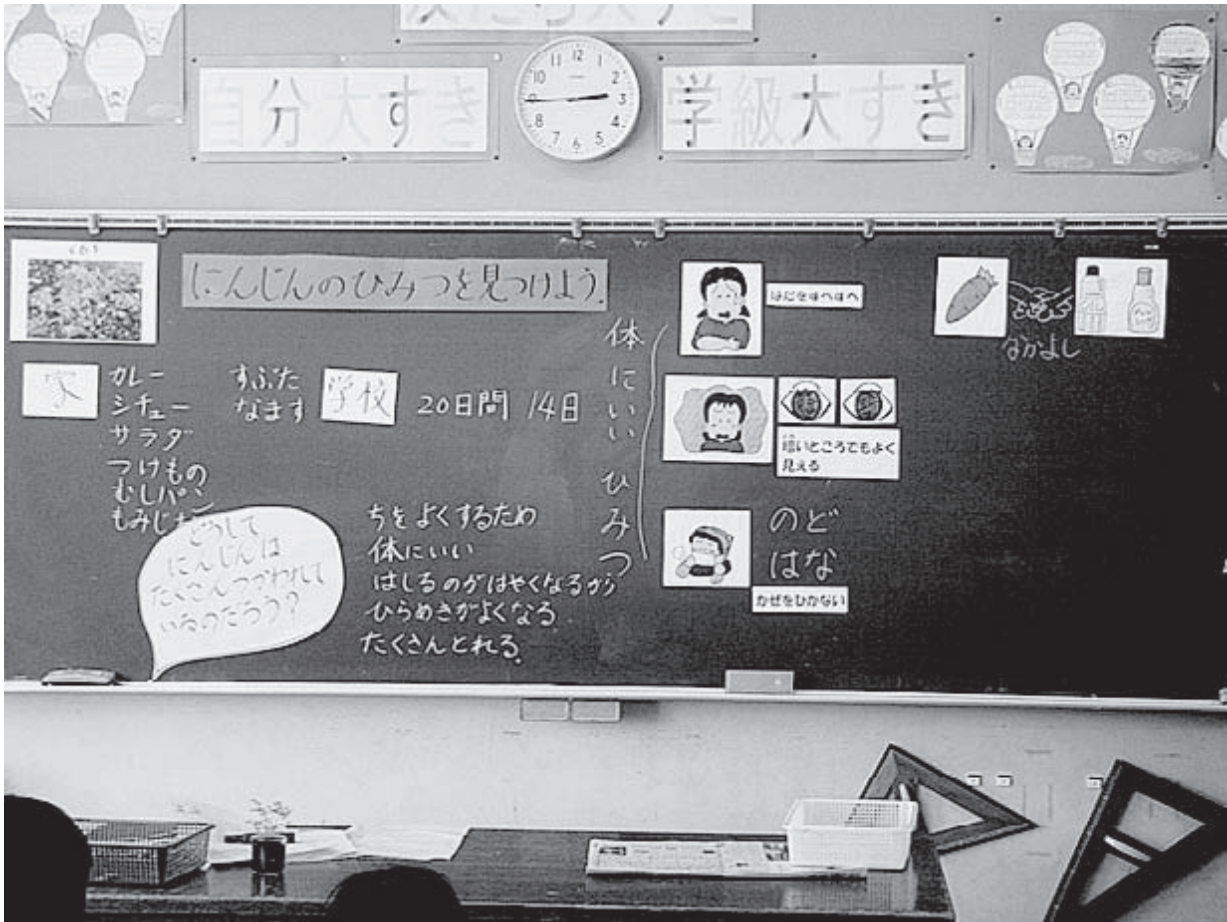 自分大すき
12
1
2
3
4
5
6
7
8
9
10
11
学級大すき
にんじんのひみつを見つけよう
家
カレー
シチュー
サラダ
つけもの
むしパン
すぶた
なます
学校
20日間 14日
どうして
にんじんは
たくさんつかわれて
いるのだろう?
ちをよくするため
体にいい
はしるのがはやくなるから
ひらめきがよくなる
たくさんとれる。
体にいいひみつ
はだをすべすべ
暗いところでもよく
見える
のど
はな
かぜをひかない
なかよし